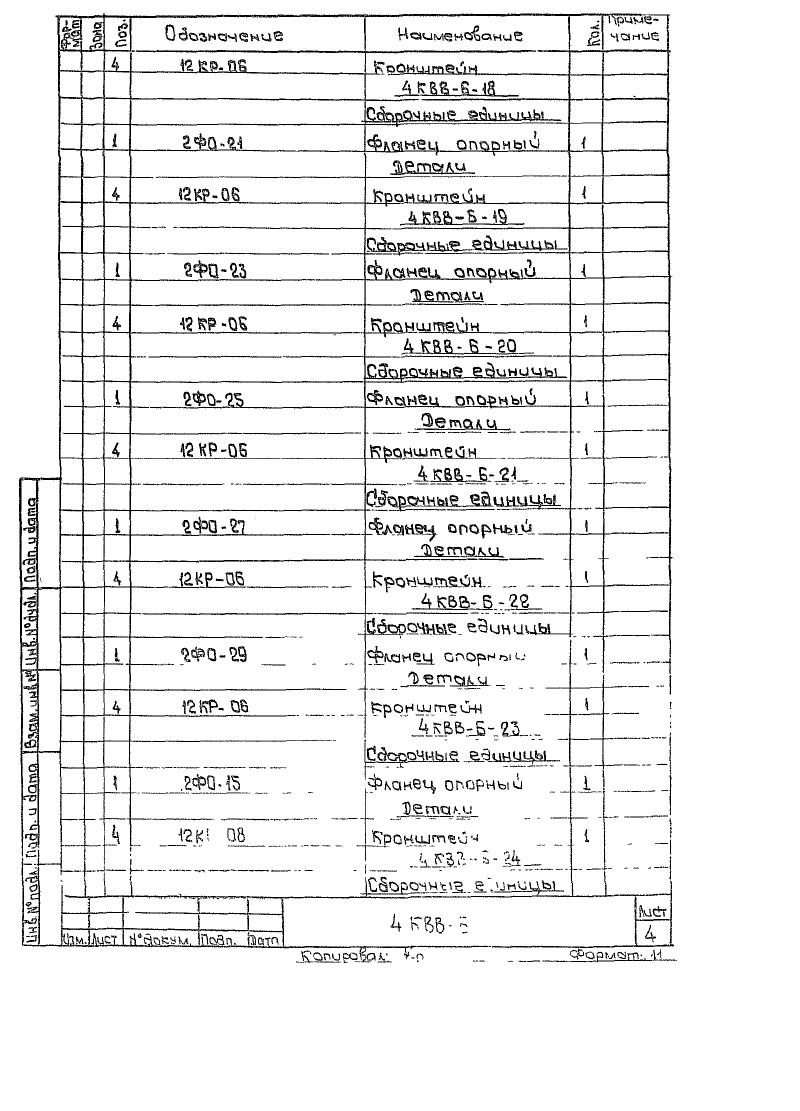 Фор-мат Зона Поз. Обозначение Наименование Кол. Приме-чание
4 12КР-06 Кронштейн
4КВВ-Б-18
Сборочные единицы
1 2ФО-21 Фланец опорный 1
Детали
4 12КР-06 Кронштейн 1
4КВВ-Б-19
Сборочные единицы
1 2ФО-23 Фланец опорный 1
Детали
4 12КР-06 Кронштейн 1
4КВВ-Б-20
Сборочные единицы
1 2ФО-25 Фланец опорный 1
Детали
4 12КР-06 Кронштейн 1
4КВВ-Б-21
Сборочные единицы
1 2ФО-27 Фланец опорный 1
Детали
4 12КР-06 Кронштейн 1
4КВВ-Б-22
Сборочные единицы
1 2ФО-29 Фланец опорный 1
Детали
4 12КР-06 Кронштейн 1
4КВВ-Б-23
Сборочные единицы
1 2ФО-15 Фланец опорный 1
Детали
4 08 Кронштейн 1
4КВВ-Б-24
Сборочные единицы
Инв.№подл. Подп. и дата Взам.инв.№ Инв.№дубл. Подп. и дата
4 КВВ-Б
Лист
4
Изм. Лист №докум. Подп. Дата
Копировал: Формат: 11